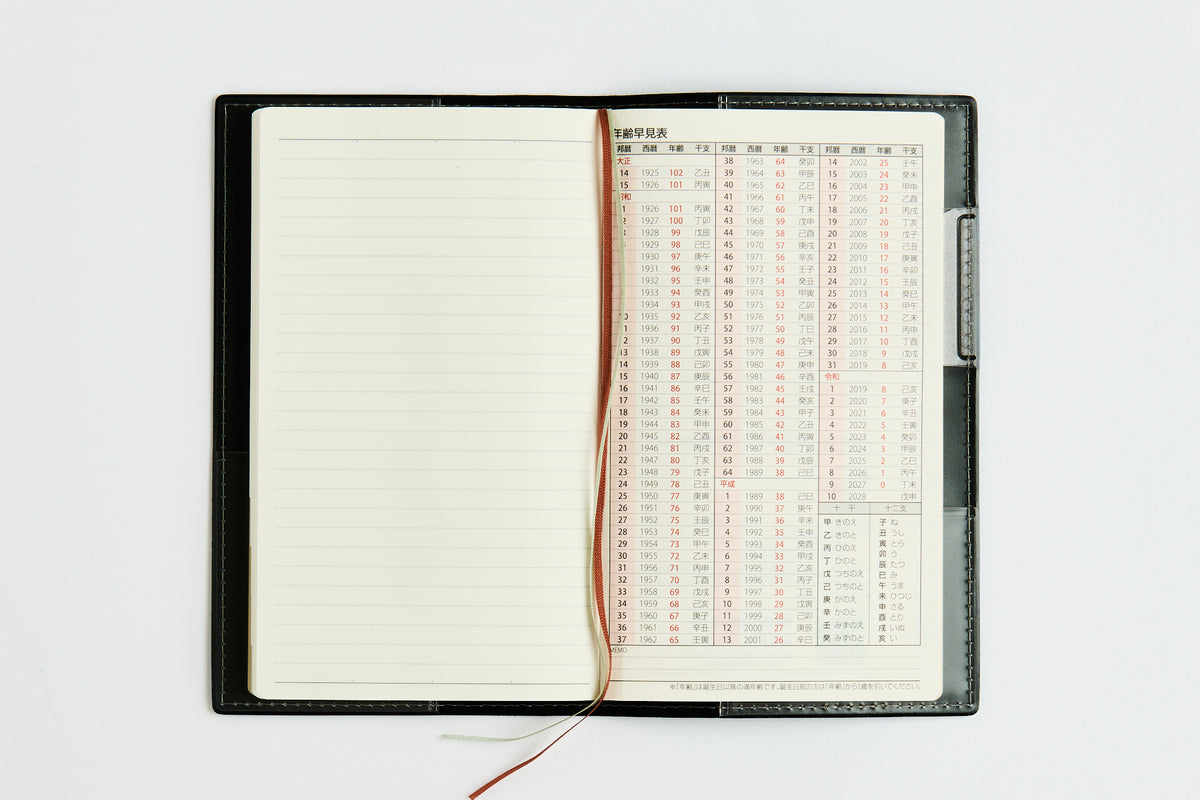 年齢早見表
邦暦 西暦 年齢 干支
大正
14 1925 102 乙丑
15 1926 101 丙寅
昭和
1 1926 101 丙寅
2 1927 100 丁卯
1928 99 戊辰
1929 98 己巳
1930 97 庚午
1931 96 辛未
1932 95 壬申
1933 94 癸酉
1934 93 甲戌
10 1935 92 乙亥
11 1936 91 丙子
12 1937 90 丁丑
13 1938 89 戊寅
14 1939 88 己卯
15 1940 87 庚辰
16 1941 86 辛巳
17 1942 85 壬午
18 1943 84 癸未
19 1944 83 甲申
20 1945 82 乙酉
21 1946 81 丙戌
22 1947 80 丁亥
23 1948 79 戊子
24 1949 78 己丑
25 1950 77 庚寅
26 1951 76 辛卯
27 1952 75 壬辰
28 1953 74 癸巳
29 1954 73 甲午
30 1955 72 乙未
31 1956 71 丙申
32 1957 70 丁酉
33 1958 69 戊戌
34 1959 68 己亥
35 1960 67 庚子
36 1961 66 辛丑
37 1962 65 壬寅
邦暦 西暦 年齢 干支
38 1963 64 癸卯
39 1964 63 甲辰
40 1965 62 乙巳
41 1966 61 丙午
42 1967 60 丁未
43 1968 59 戊申
44 1969 58 己酉
45 1970 57 庚戌
46 1971 56 辛亥
47 1972 55 壬子
48 1973 54 癸丑
49 1974 53 甲寅
50 1975 52 乙卯
51 1976 51 丙辰
52 1977 50 丁巳
53 1978 49 戊午
54 1979 48 己未
55 1980 47 庚申
56 1981 46 辛酉
57 1982 45 壬戌
58 1983 44 癸亥
59 1984 43 甲子
60 1985 42 乙丑
61 1986 41 丙寅
62 1987 40 丁卯
63 1988 39 戊辰
64 1989 38 己巳
平成
1 1989 38 己巳
2 1990 37 庚午
3 1991 36 辛未
4 1992 35 壬申
5 1993 34 癸酉
6 1994 33 甲戌
7 1995 32 乙亥
8 1996 31 丙子
9 1997 30 丁丑
10 1998 29 戊寅
11 1999 28 己卯
12 2000 27 庚辰
13 2001 26 辛巳
邦暦 西暦 年齢 干支
14 2002 25 壬午
15 2003 24 癸未
16 2004 23 甲申
17 2005 22 乙酉
18 2006 21 丙戌
19 2007 20 丁亥
20 2008 19 戊子
21 2009 18 己丑
22 2010 17 庚寅
23 2011 16 辛卯
24 2012 15 壬辰
25 2013 14 癸巳
26 2014 13 甲午
27 2015 12 乙未
28 2016 11 丙申
29 2017 10 丁酉
30 2018 9 戊戌
31 2019 8 己亥
令和
1 2019 8 己亥
2 2020 7 庚子
3 2021 6 辛丑
4 2022 5 壬寅
5 2023 4 癸卯
6 2024 3 甲辰
7 2025 2 乙巳
8 2026 1 丙午
9 2027 0 丁未
10 2028 戊申
十 干
甲 きのえ
乙 きのと
丙 ひのえ
丁 ひのと
戊 つちのえ
己 つちのと
庚 かのえ
辛 かのと
壬 みずのえ
癸 みずのと
十二支
子 ね
丑 うし
寅 とら
卯 う
辰 たつ
巳 み
午 うま
未 ひつじ
申 さる
酉 とり
戌 いぬ
亥 い
MEMO
※「年齢」は誕生日以降の満年齢です。誕生日前の方は「年齢」から1歳を引いてください。